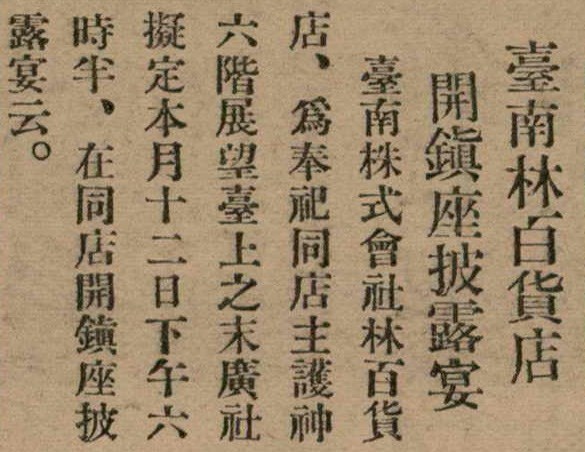 臺南林百貨店
開鎭座披露宴
臺南株式會社林百貨
店、爲奉祀同店主護神
六階展望臺上之末廣社
擬定本月十二日下午六
時半、在同店開鎭座披
露宴云。